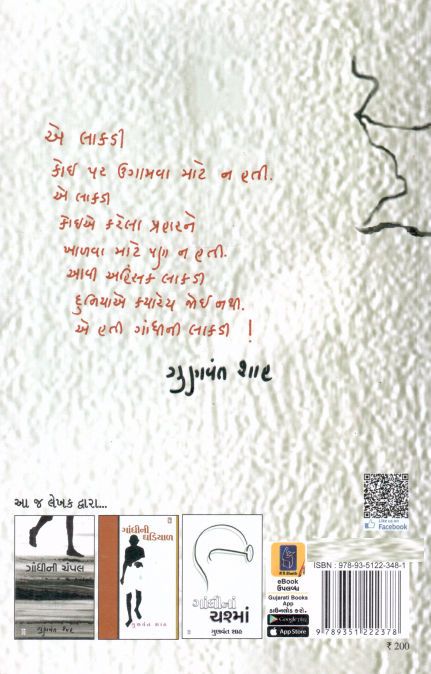 એ લાકડી
કોઈ પર ઉગામવા માટે ન હતી.
એ લાકડી
કોઈએ કરેલા પ્રહારને
ખાળવા માટે પણ ન હતી.
આવી અહિંસક લાકડી
દુનિયાએ ક્યારેય જોઈ નથી.
એ હતી ગાંધીની લાકડી !
ગુણવંત શાહ
આ જ લેખક દ્વારા...
Like us on
Facebook
ગાંધીની ચંપલ
ગુણવંત શાહ
ગાંધીની
ઘડિયાળ
ગુણવંત શાહ
ગાંધીનાં
ચશ્માં
ગુણવંત શાહ
eBook
ઉપલબ્ધ
Gujarati Books
App
ડાઉનલોડ કરો.
Google play
App Store
ISBN : 978-93-5122-348-1
9 789351 222378
₹ 200